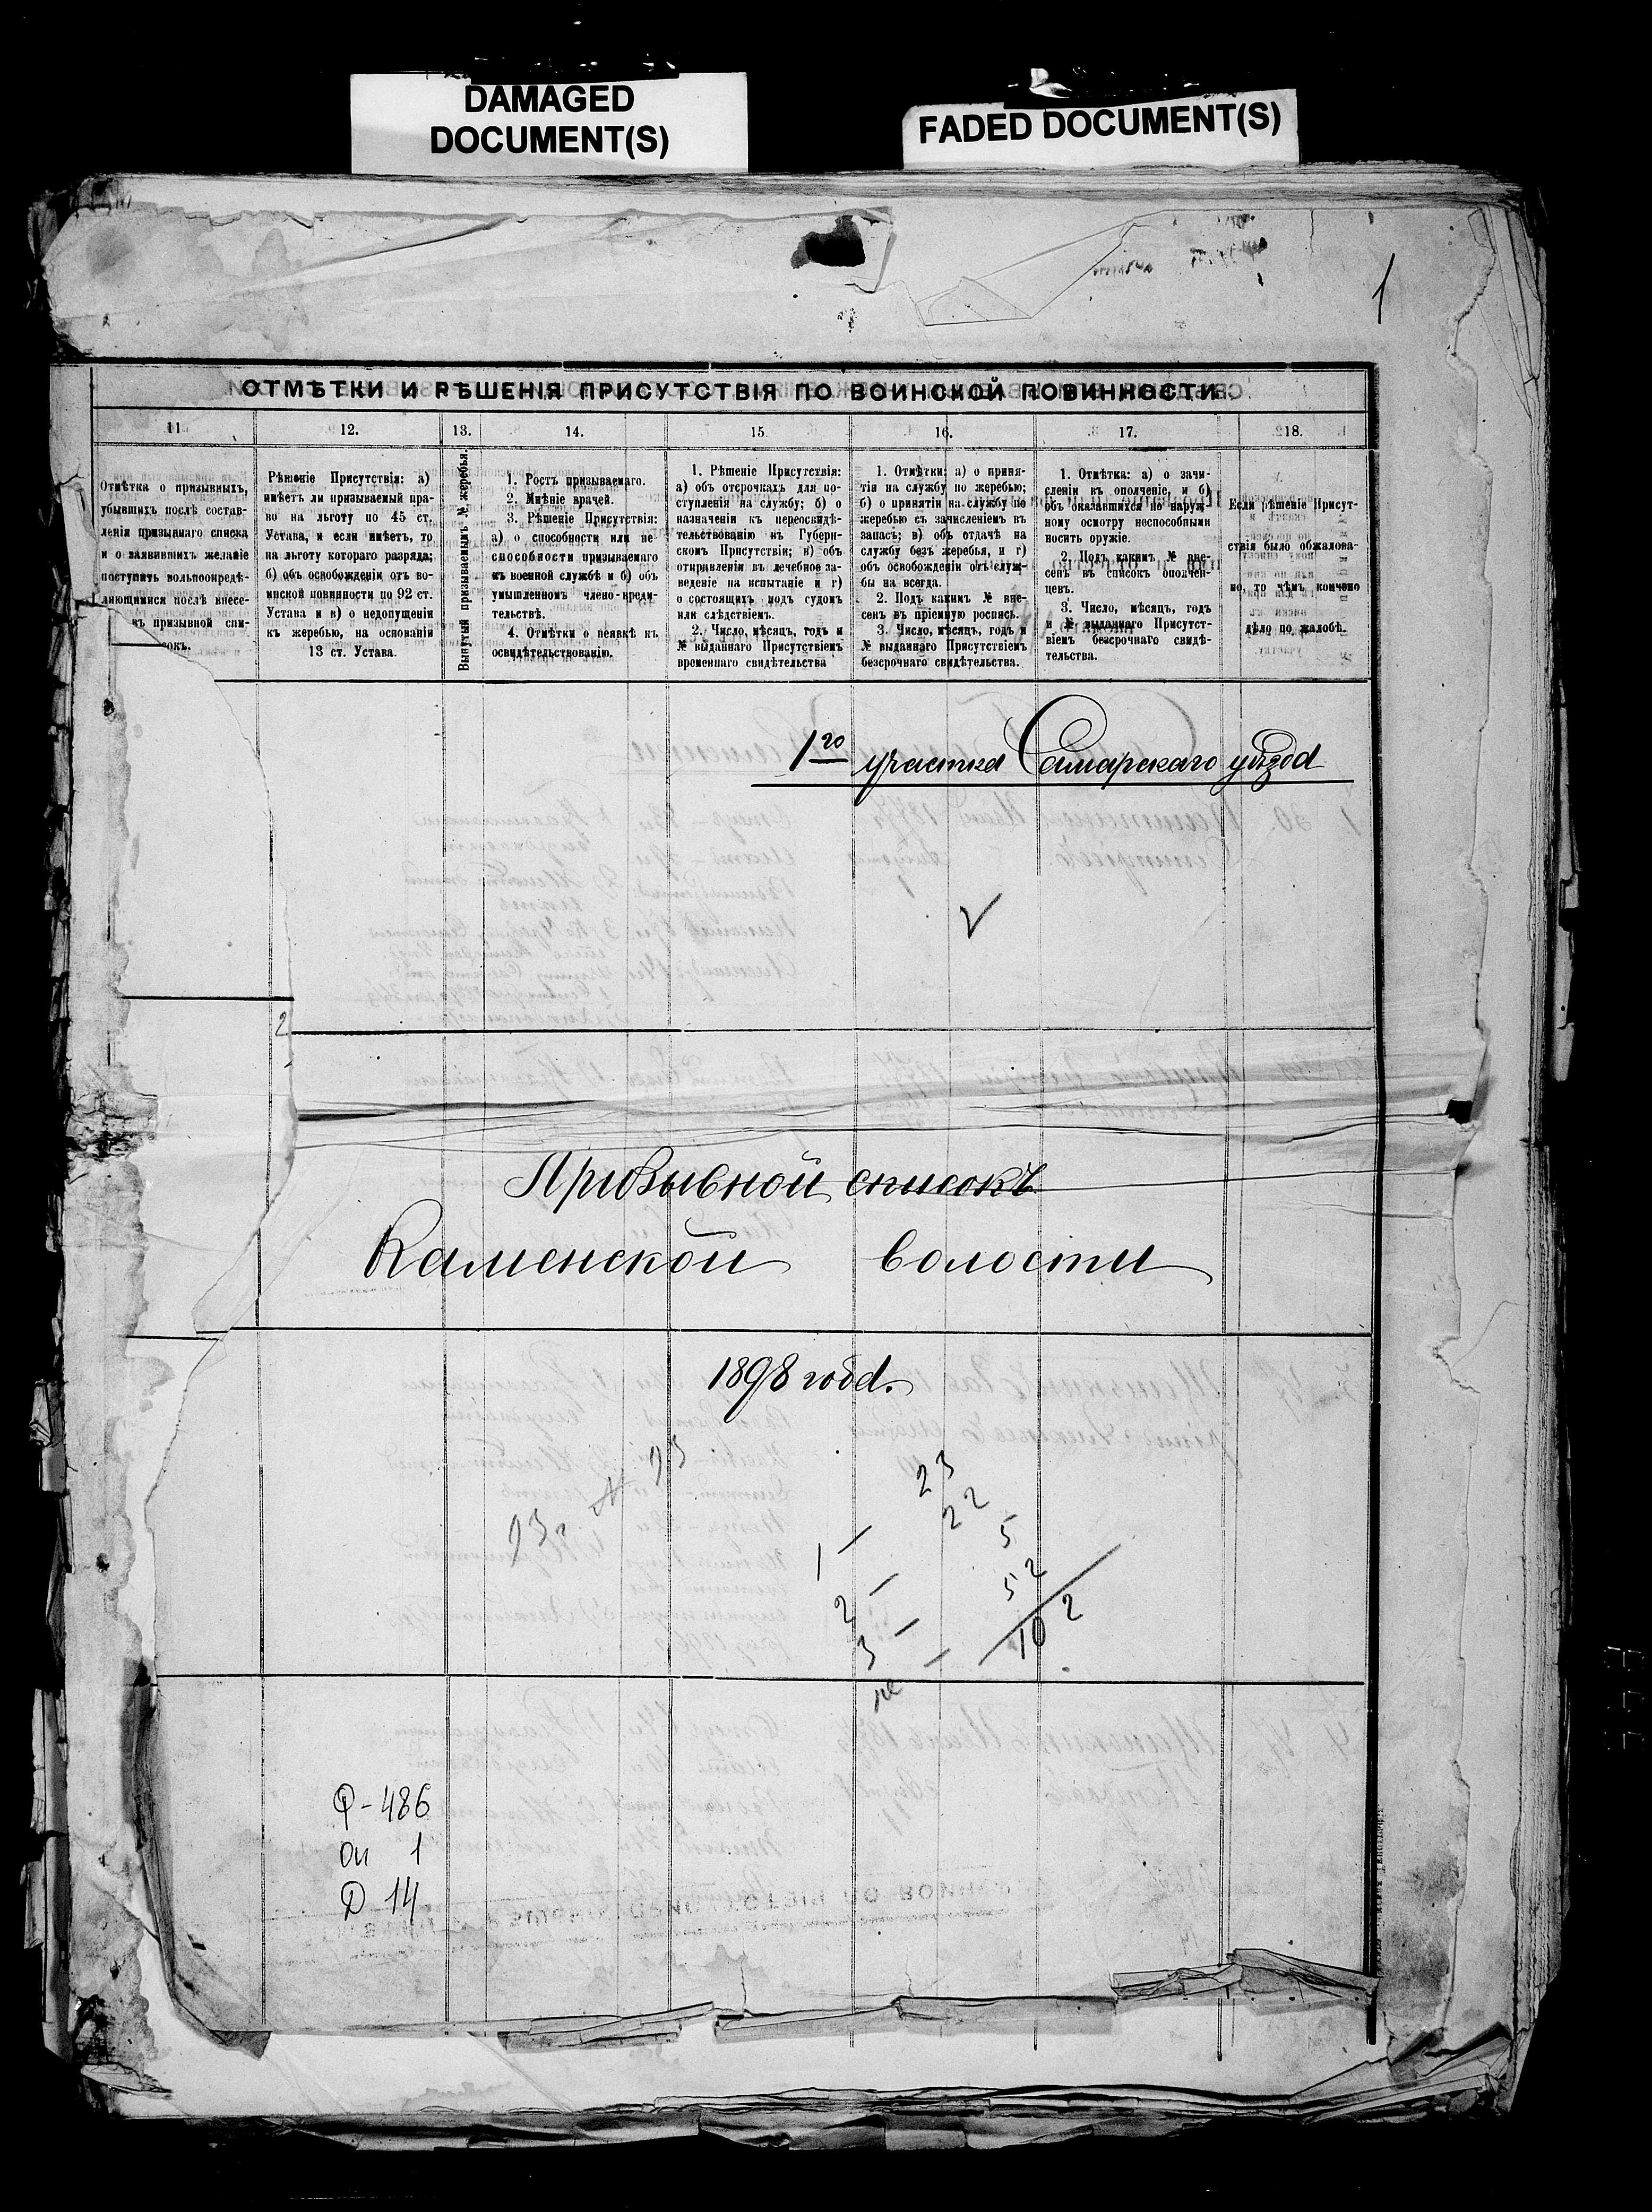 DAMAGED
DOCUMENT(S)
FADED DOCUMENT(S)
1
ОТМѢТКИ И РѢШЕНІЯ ПРИСУТСТВІЯ ПО ВОИНСКОЙ ПОВИННОСТИ.
11.
12.
13.
14.
15.
16.
17.
18.
Отмѣтка о призывныхъ,
убывшихъ послѣ состав-
ленія призывнаго списка
и о заявившихъ желаніе
поступить вольноопредѣ-
ляющимися послѣ внесе-
въ призывной спи-
сокъ.
Рѣшеніе Присутствія: а)
имѣетъ ли призываемый пра-
во на льготу по 45 ст.
Устава, и если имѣетъ, то
на льготу котораго разряда;
б) объ освобожденіи отъ во-
инской повинности по 92 ст.
Устава и в) о недопущеніи
къ жеребью, на основаніи
13 ст. Устава.
Вынутый призываемымъ № жеребья.
1. Ростъ призываемаго.
2. Мнѣніе врачей.
3. Рѣшеніе Присутствія:
а) о способности или не-
способности призываемаго
къ военной службѣ и б) объ
умышленномъ члено-вреди-
тельствѣ.
4. Отмѣтки о неявкѣ къ
освидѣтельствованію.
1. Рѣшеніе Присутствія:
а) объ отсрочкахъ для по-
ступленія на службу; б) о
назначеніи къ переосвидѣ-
тельствованію въ Губерн-
скомъ Присутствіи; в) объ
отправленіи въ лечебное за-
веденіе на испытаніе и г)
о состоящихъ подъ судомъ
или слѣдствіемъ.
2. Число, мѣсяцъ, годъ и
№ выданнаго Присутствіемъ
временнаго свидѣтельства
1. Отмѣтки: а) о приня-
тіи на службу по жеребью;
б) о принятіи на службу по
жеребью съ зачисленіемъ въ
запасъ; в) объ отдачѣ на
службу безъ жеребья, и г)
объ освобожденіи отъ служ-
бы на всегда.
2. Подъ какимъ № вне-
сенъ въ пріемную роспись.
3. Число, мѣсяцъ, годъ и
№ выданнаго Присутствіемъ
безсрочнаго свидѣтельства.
1. Отмѣтка: а) о зачи-
сленіи въ ополченіе, и б)
объ оказавшихся по наруж-
ному осмотру неспособными
носить оружіе.
2. Подъ какимъ № вне-
сенъ въ списокъ ополчен-
цевъ.
3. Число, мѣсяцъ, годъ
и № выданнаго Присутст-
віемъ безсрочнаго свидѣ-
тельства.
Если рѣшеніе Присут-
ствія было обжалова-
но, то чѣмъ кончено
дѣло по жалобѣ.
1го участка Самарскаго уѣзда
2
Призывной списокъ
Каменской волости
1898 года.
23
22
1 — 5
2 — 52
3 — 102
не —
Ф-486
Оп 1
Д 14